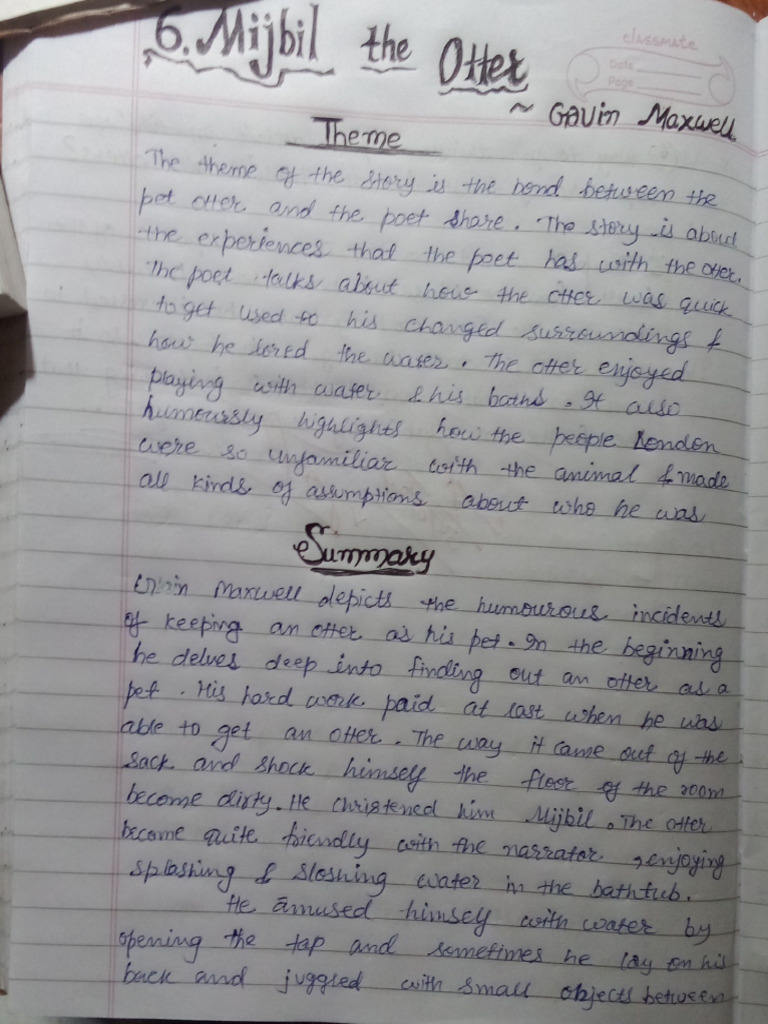 classmate
Date
Page
6. Mijbil the Otter
~ Gavin Maxwell
Theme
The theme of the story is the bond between the
pet otter and the poet share. The story is about
the experiences that the poet has with the otter.
The poet talks about how the otter was quick
to get used to his changed surroundings &
how he loved the water. The otter enjoyed
playing with water & his baths. It also
humoursly highlights how the people London
were so unfamiliar with the animal & made
all kinds of assumptions about who he was
Summary
Maxwell depicts the humourous incidents
of keeping an otter as his pet. In the beginning
he delves deep into finding out an otter as a
pet. His hard work paid at last when he was
able to get an otter. The way it came out of the
sack and shock himself the floor of the room
become dirty. He christened him Mijbil. The otter
become quite friendly with the narrator, enjoying
splashing & sloshing water in the bathtub.
He amused himself with water by
opening the tap and sometimes he lay on his
back and juggled with small objects between